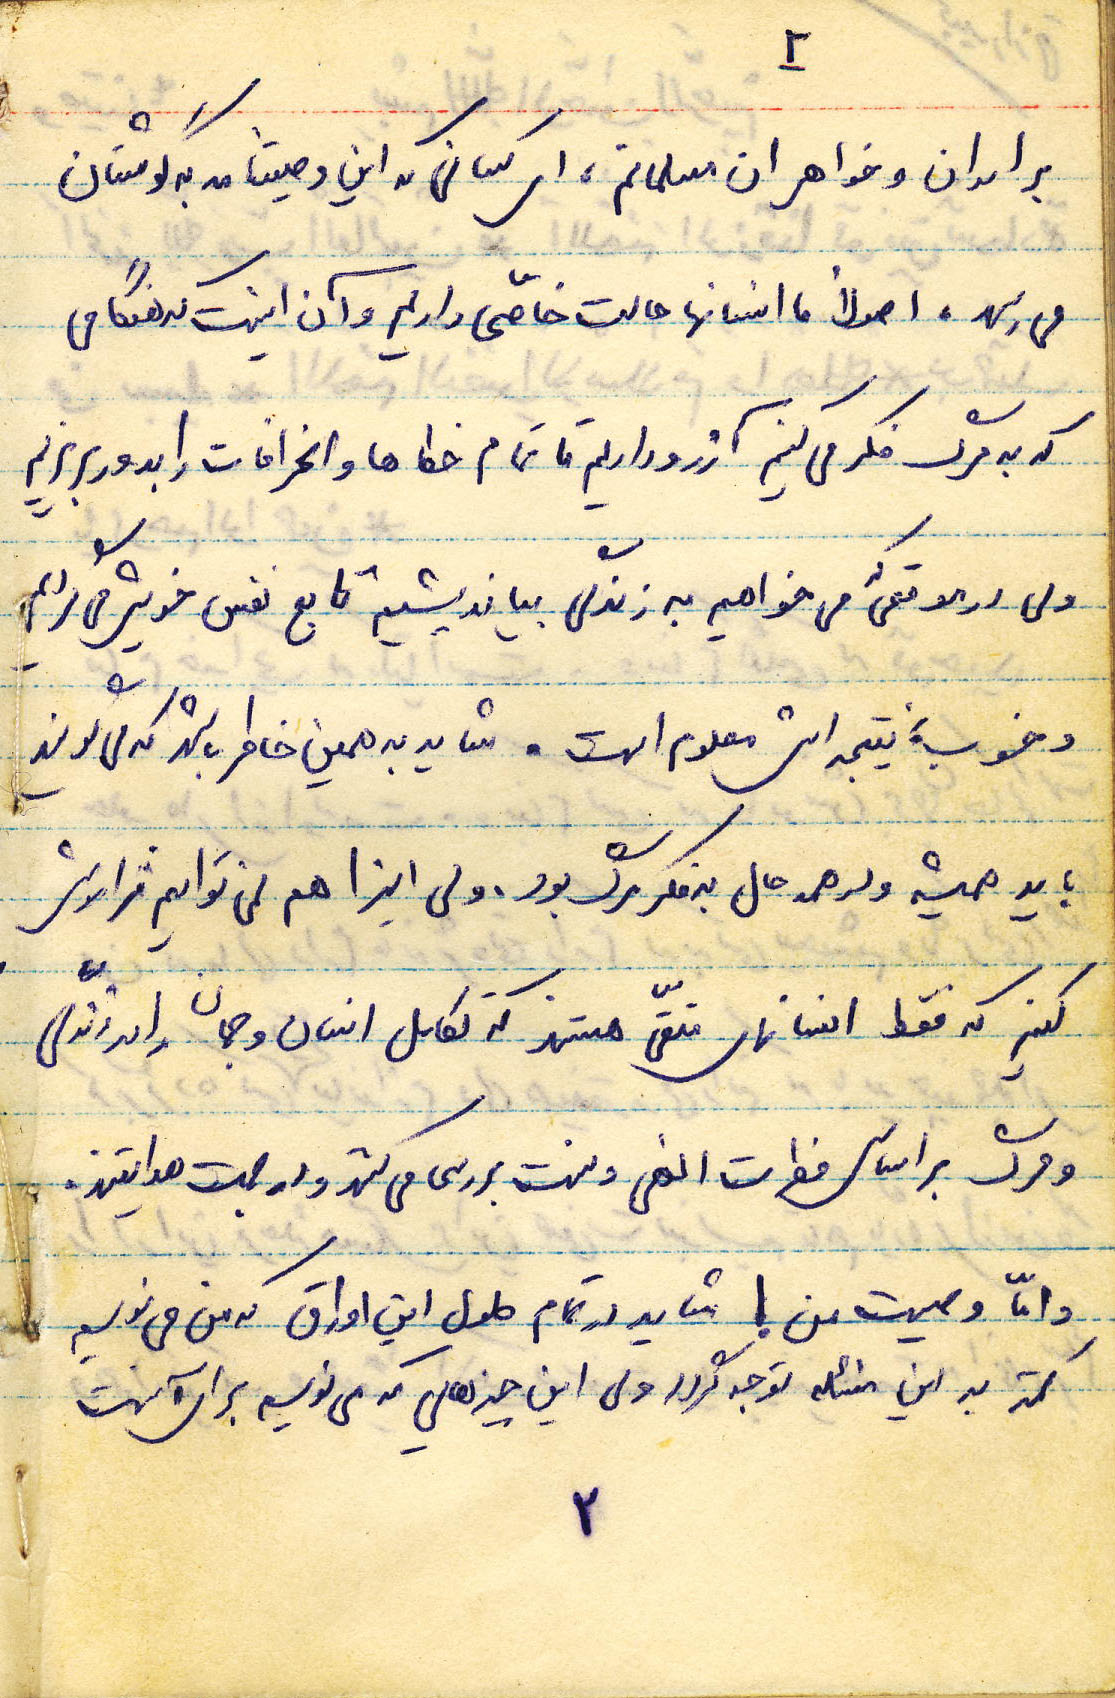 ۲
برادران و خواهران مسلمانم، ای کسانی که این وصیتنامه به گوشتان
می‌رسد، اصولاً ما انسانها حالت خاصّی داریم و آن اینست که هنگامی
که به مرگ فکر می‌کنیم آرزو داریم تا تمام خطاها و انحرافات را بدور بریزیم
ولی در موقعی که می‌خواهیم به زندگی بیاندیشیم تابع نفس خویش می‌گردیم
و خوب نتیجه اش معلوم است. شاید به همین خاطر باشد که می‌گویند
باید همیشه و در همه حال به فکر مرگ بود. ولی اینرا هم نمی‌توانیم فراموش
کنیم که فقط انسانهای متقّی هستند که تکامل انسان و جهان را در زندگی
و مرگ بر اساس فطرت الهی و سنت بررسی می‌کنند و در جهت هدایتند.
و امّا وصیت من! شاید در تمام طول این اوراق که من می‌نویسم
کمتر به این مسئله توجه گردد ولی این چیزهایی که می‌نویسم برای آنست
۲